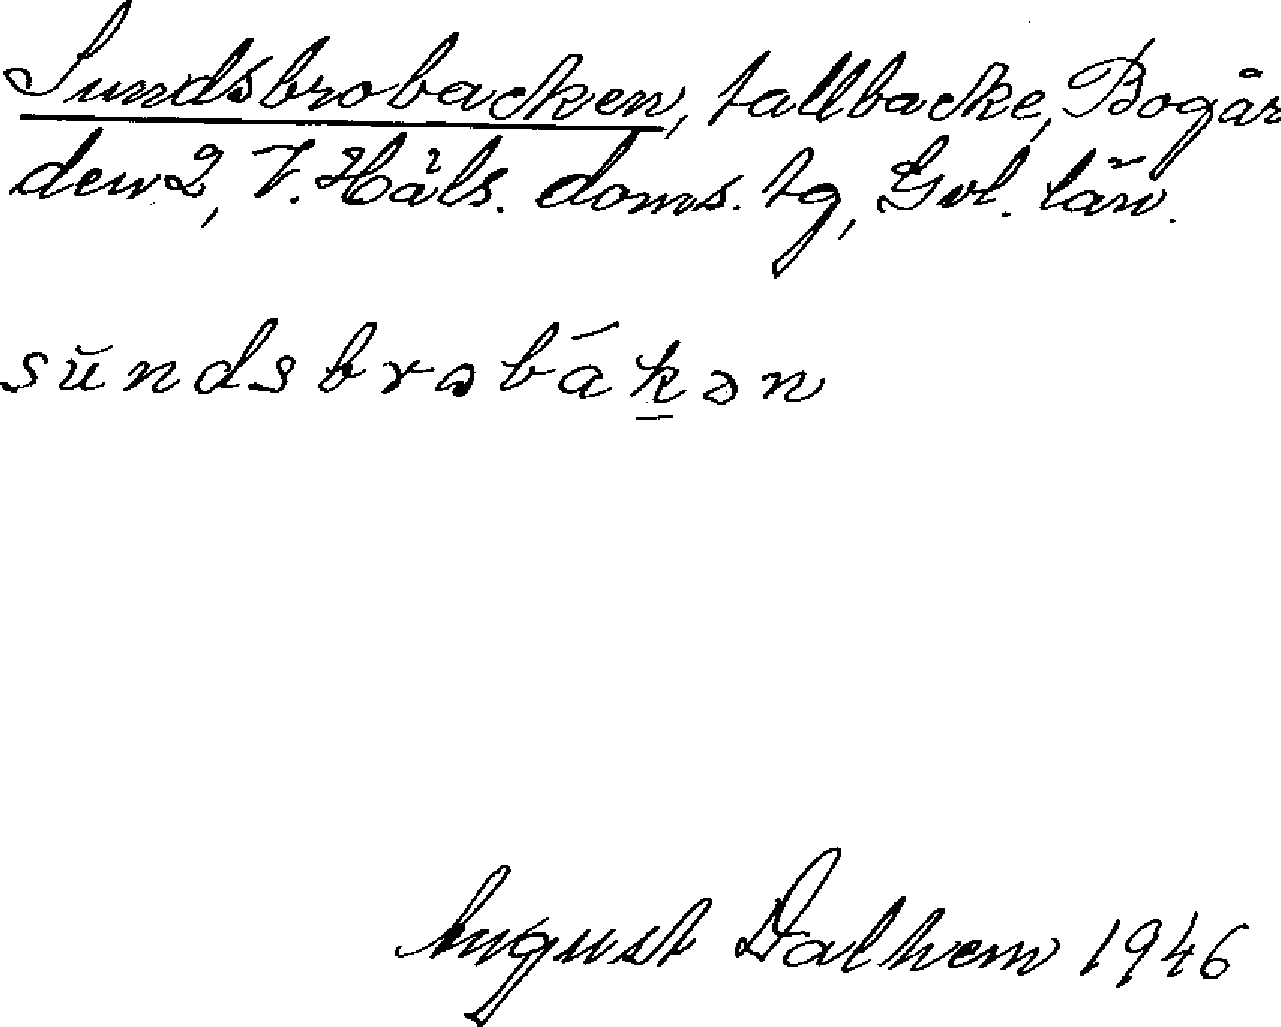 Sundsbrobacken, tallbacke, Bogår
den 2, V. Häls. doms. tg, Gvl. län.
sŭndsbrɷbákən
August Dalhem 1946